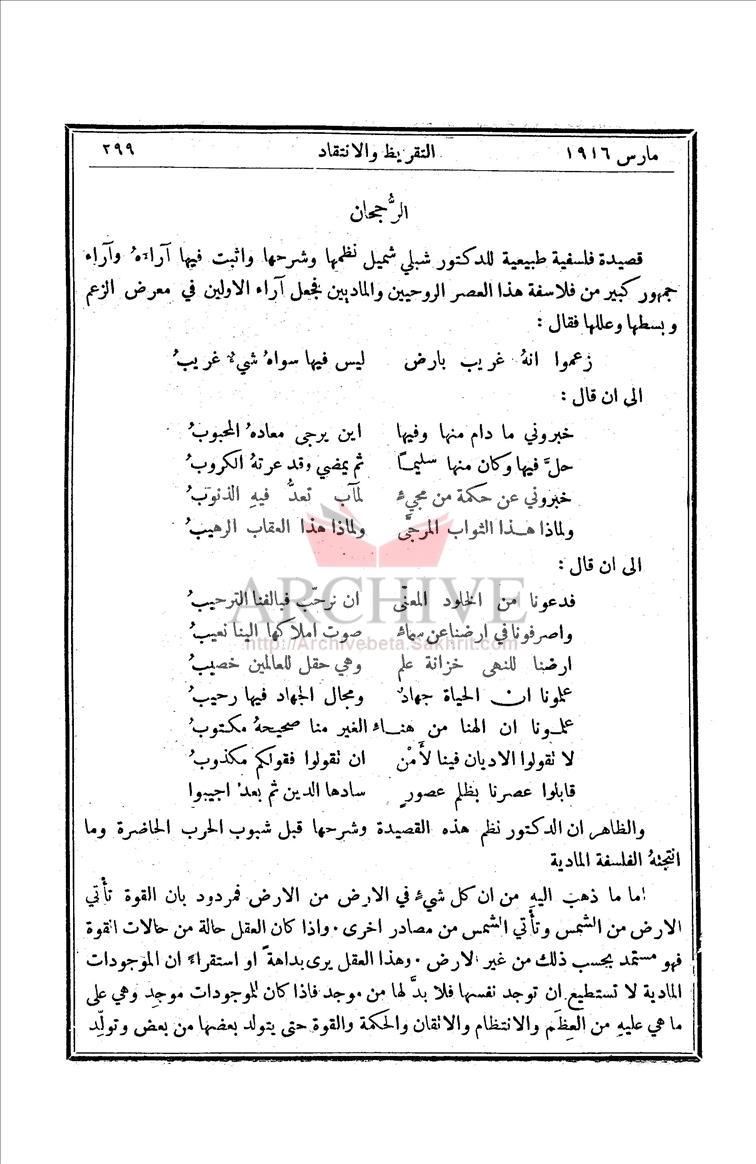 مارس ١٩١٦ التقريظ والانتقاد ٢٩٩
الرُّجحان
قصيدة فلسفية طبيعية للدكتور شبلي شميل نظمها وشرحها واثبت فيها آراءهُ وآراء
جمهور كبير من فلاسفة هذا العصر الروحيين والماديين فجعل آراء الاولين في معرض الزعم
وبسطها وعللها فقال :
زعموا انهُ غريب بارض ليس فيها سواهُ شيءٌ غريبُ
الى ان قال :
خبروني ما دام منها وفيها اين يرجى معادهُ المحبوبُ
حلَّ فيها وكان منها سليمًا ثم يمضي وقد عرتهُ الكروبُ
خبروني عن حكمة من مجيءٍ لمآب تعدُّ فيهِ الذنوبُ
ولماذا هذا الثواب المرجَّى ولماذا هذا العقاب الرهيبُ
الى ان قال :
فدعونا من الخلود المعنّى ان نرحّب فبالفنا الترحيبُ
واصرفونا في ارضنا عن سماءٍ صوت املاكها الينا نعيبُ
ارضنا للنهى خزانة علم وهي حقل للعالمين خصيبُ
علمونا ان الحياة جهادٌ ومجال الجهاد فيها رحيبُ
علمونا ان الهنا من هناء الغير منا صحيحهُ مكتوبُ
لا تقولوا الاديان فينا لأَمْنٍ ان تقولوا فقولكم مكذوبُ
قابلوا عصرنا بظلم عصورٍ سادها الدين ثم بعدُ اجيبوا
والظاهر ان الدكتور نظم هذه القصيدة وشرحها قبل شبوب الحرب الحاضرة وما
انتجتهُ الفلسفة المادية
اما ما ذهب اليهِ من ان كل شيءٍ في الارض من الارض فمردود بان القوة تأتي
الارض من الشمس وتأتي الشمس من مصادر اخرى . واذا كان العقل حالة من حالات القوة
فهو مستمد بحسب ذلك من غير الارض . وهذا العقل يرى بداهةً او استقراءً ان الموجودات
المادية لا تستطيع ان توجد نفسها فلا بدَّ لها من موجد فاذا كان للموجودات موجد وهي على
ما هي عليهِ من العِظَم والانتظام والاتقان والحكمة والقوة حتى يتولد بعضها من بعض وتولِّد
ARCHIVE
http://Archivebeta.Sakhrit.com